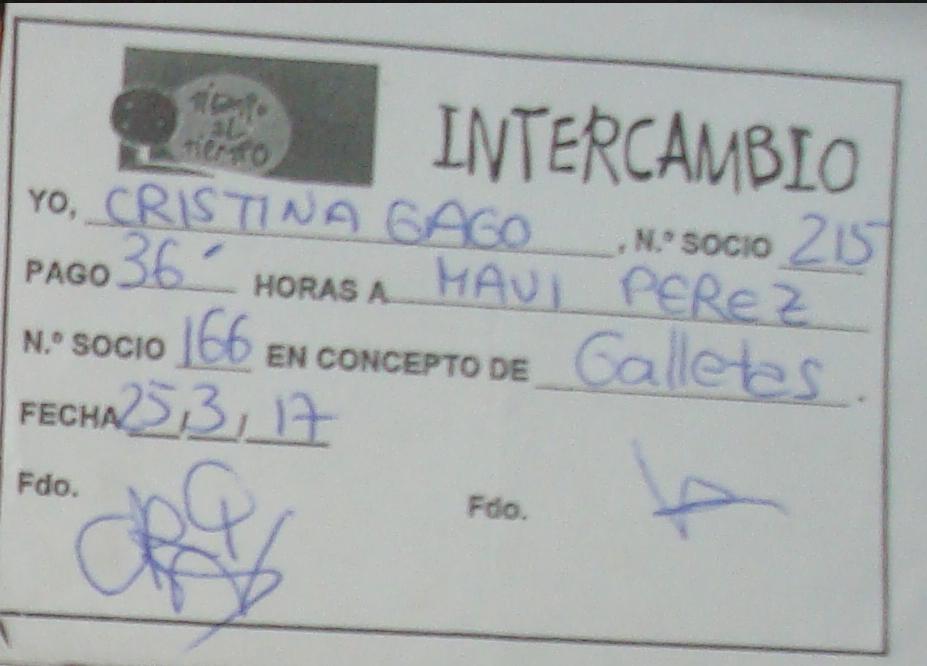 Tiempo
al
tiempo
INTERCAMBIO
YO, CRISTINA GAGO, N.º SOCIO 215
PAGO 36´ HORAS A MAVI PEREZ
N.º SOCIO 166 EN CONCEPTO DE Galletas.
FECHA 25, 3, 17
Fdo. Fdo.